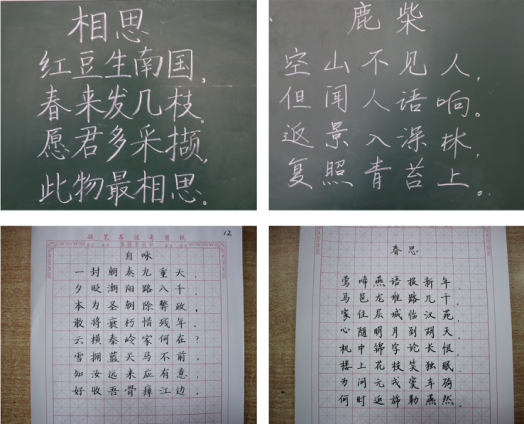 相思
红豆生南国,
春来发几枝。
愿君多采撷,
此物最相思。
鹿柴
空山不见人,
但闻人语响。
返景入深林,
复照青苔上。
硬笔书法专用纸
12
自咏
一封朝奏九重天,
夕贬潮阳路八千.
本为圣朝除弊政,
敢将衰朽惜残年.
云横秦岭家何在?
雪拥蓝关马不前.
知汝远来应有意,
好收吾骨瘴江边.
春思
莺啼燕语报新年,
马邑龙堆路几千.
家住层城临汉苑,
心随明月到胡天.
机中锦字论长恨,
楼上花枝笑独眠.
为问元戎窦车骑,
何时返旆勒燕然.